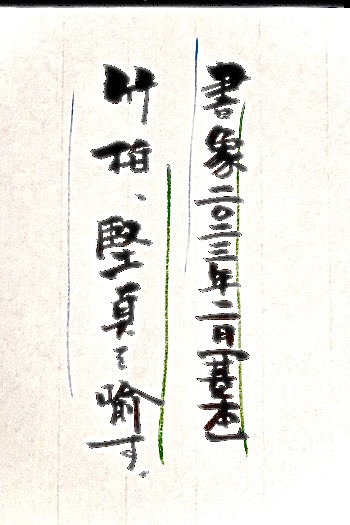 書象二〇二三年二月「基本」
竹柏、堅貞を喩す。